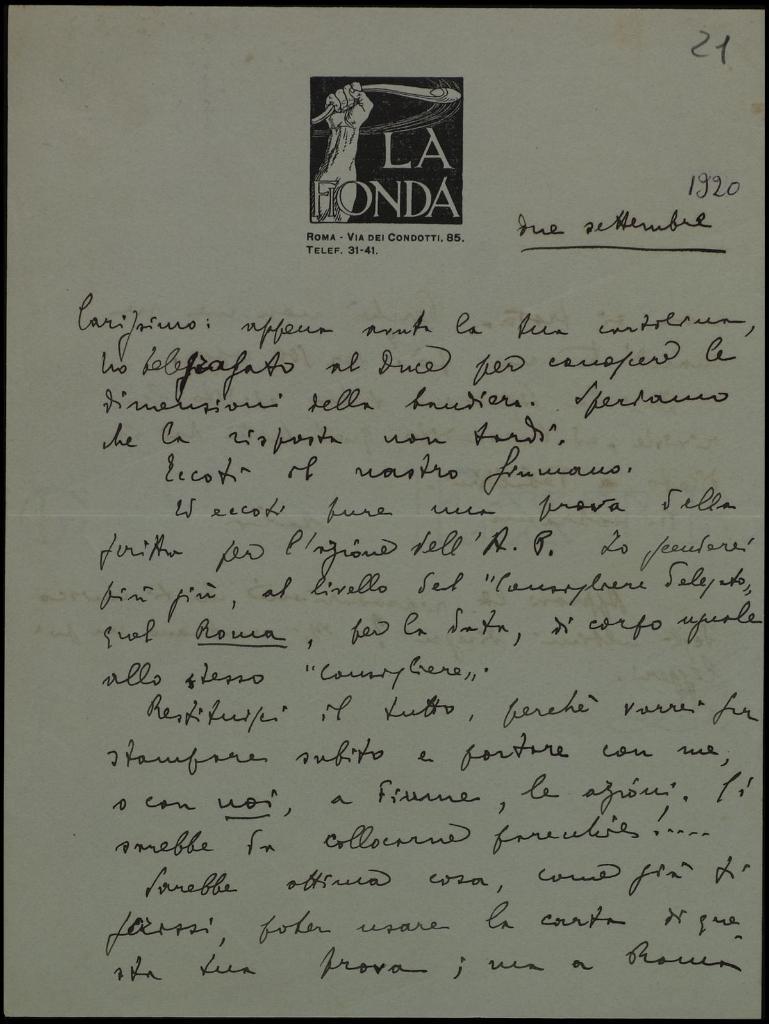 21
LA
FIONDA
ROMA - VIA DEI CONDOTTI, 85.
TELEF. 31-41.
1920
due settembre
Carissimo: appena avuta la tua cartolina,
ho telegrafato al Duce per conoscere le
dimensioni della bandiera. Speriamo
che la risposta non tardi.
Eccoti il nastro fiumano.
Ed eccoti pure una prova della
scritta per l'azione dell'A. P. Io scenderei
più giù, al livello del "Consigliere delegato„
quel Roma, per la data, di corpo uguale
allo stesso "Consigliere„.
Restituisci il tutto, perchè vorrei far
stampare subito e portare con me,
o con noi, a Fiume, le azioni. Ci
sarebbe da collocarne parecchie!....
Sarebbe ottima cosa, come già ti
scrissi, poter usare la carta di que
sta tua prova; ma a Roma